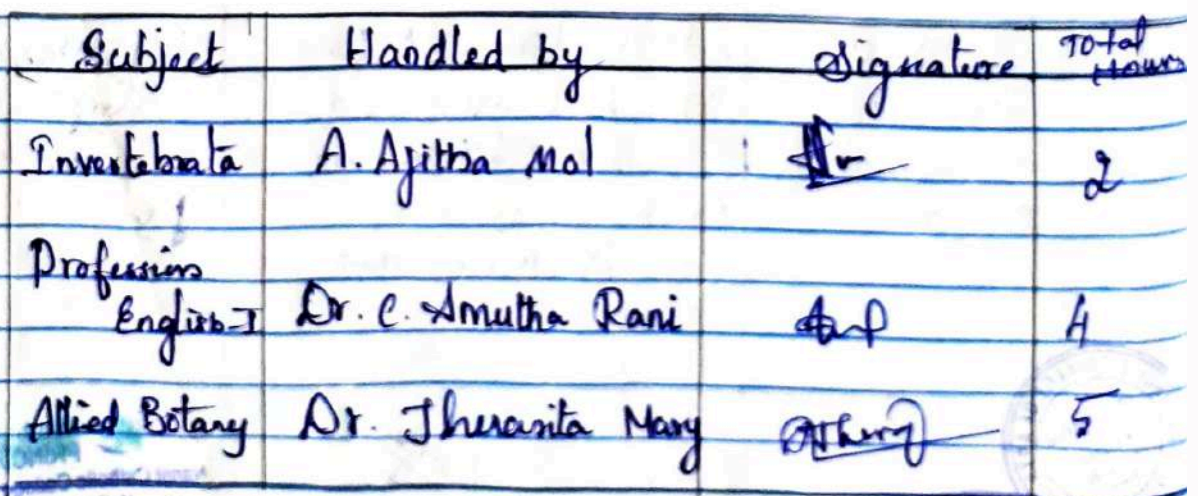 Subject Handled by Signature Total Hours
Invertebrata A. Ajitha Mol 2
Professions
English-I Dr. C. Amutha Rani 4
Allied Botany Dr. Therasita Mary 5